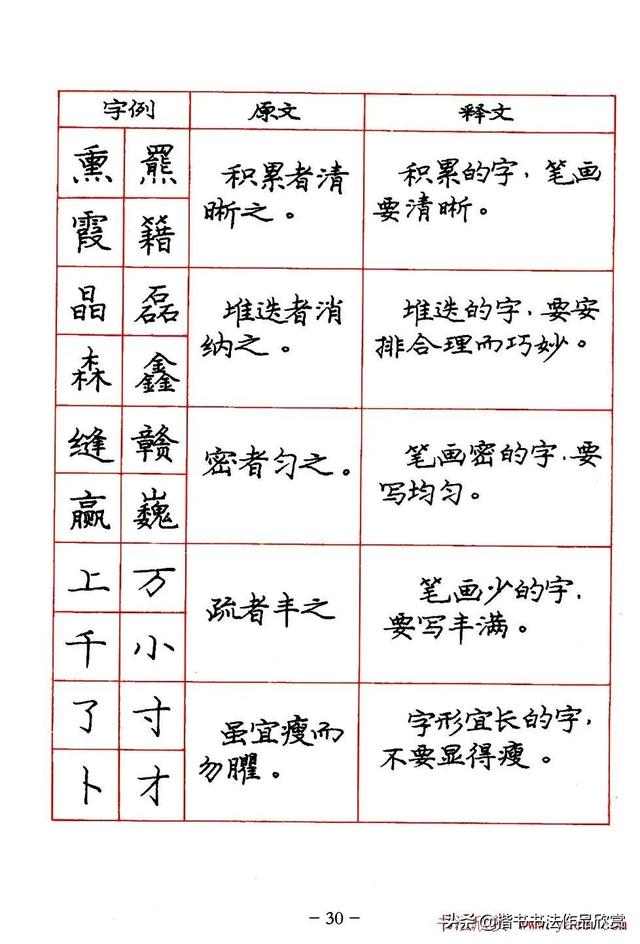 字例 原文 释文
熏 羆 积累者清 积累的字,笔画
霞 籍 晰之。 要清晰。
晶 磊 堆迭者消 堆迭的字,要安
森 鑫 纳之。 排合理而巧妙。
缝 赣 密者匀之。 笔画密的字,要
赢 巍 写均匀。
上 万 疏者丰之 笔画少的字,
千 小 要写丰满。
了 寸 虽宜瘦而 字形宜长的字,
卜 才 勿臞。 不要显得瘦。
- 30 -
头条@楷书书法作品欣赏